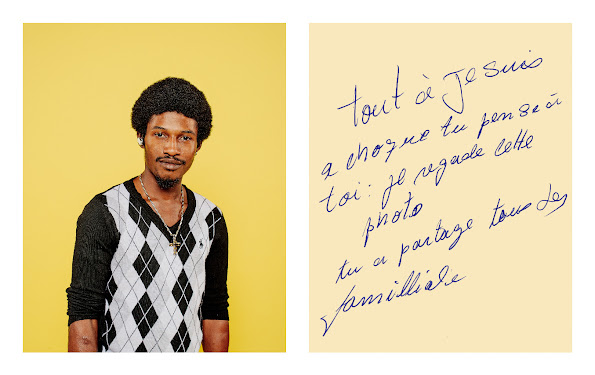 tout à Jesuis
a choque tu pense à
toi : je regade cette
photo
tu a partage tous des
familliale